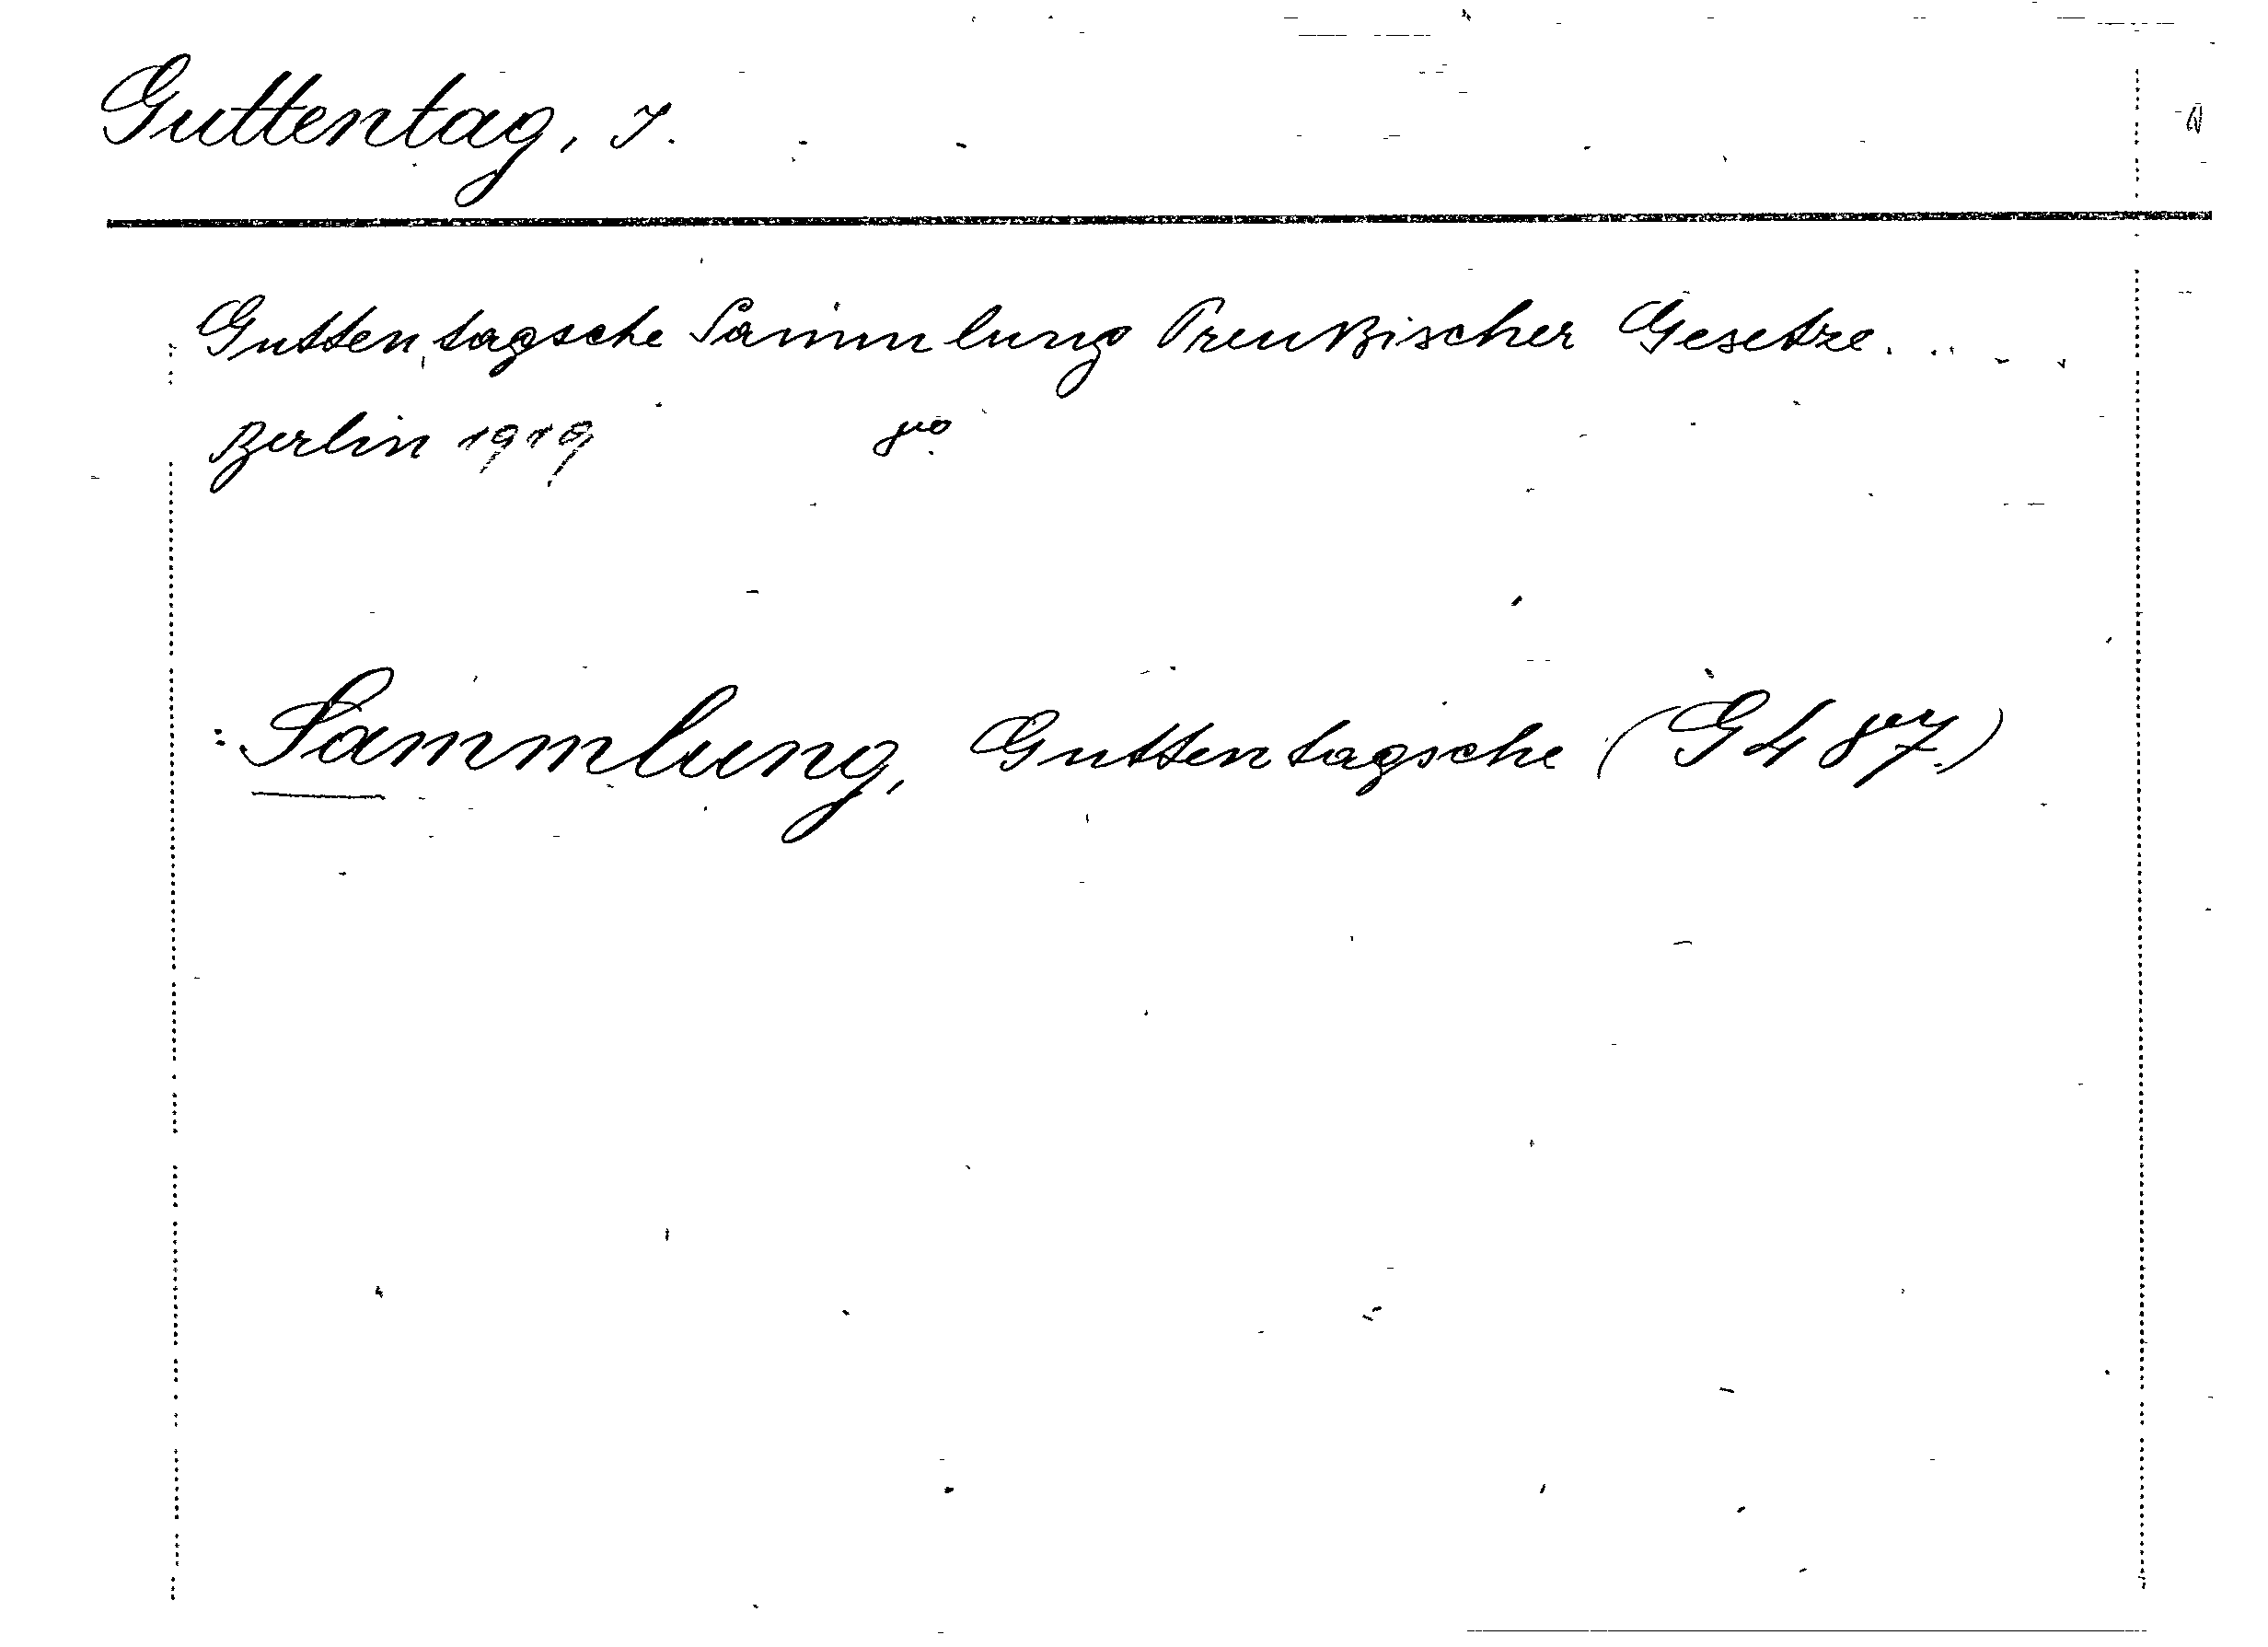 Guttentag, J.
Guttentagsche Sammlung Preußischer Gesetze....
Berlin 1919 8°.
: Sammlung, Guttentagsche (G 487.)